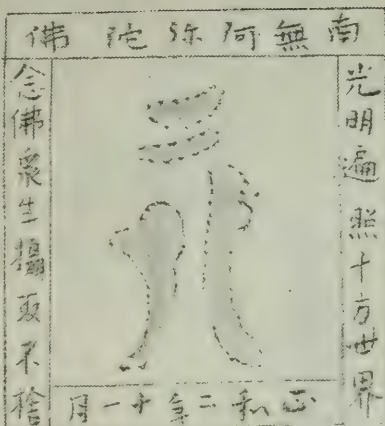 南無阿弥陀佛
光明遍照十方世界
念佛衆生攝取不捨
正和二年十一月